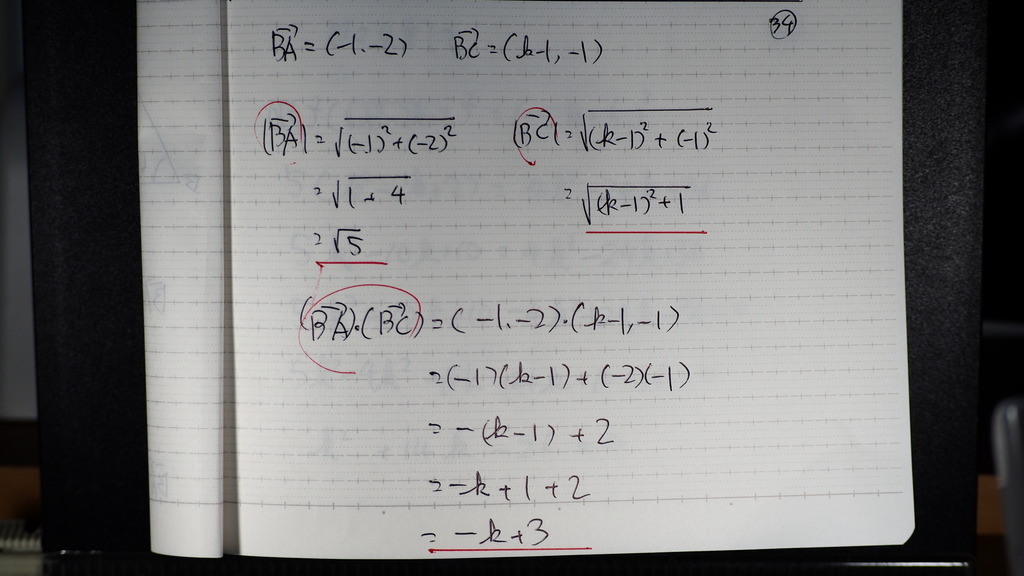 34
BA→ = (-1.-2) BC→ = (k-1, -1)
|BA→| = √((-1)²+(-2)²) |BC→| = √((k-1)²+(-1)²)
= √(1+4) = √((k-1)²+1)
= √5
(BA→)·(BC→) = (-1.-2)·(k-1,-1)
= (-1)(k-1)+(-2)(-1)
= -(k-1)+2
= -k+1+2
= -k+3